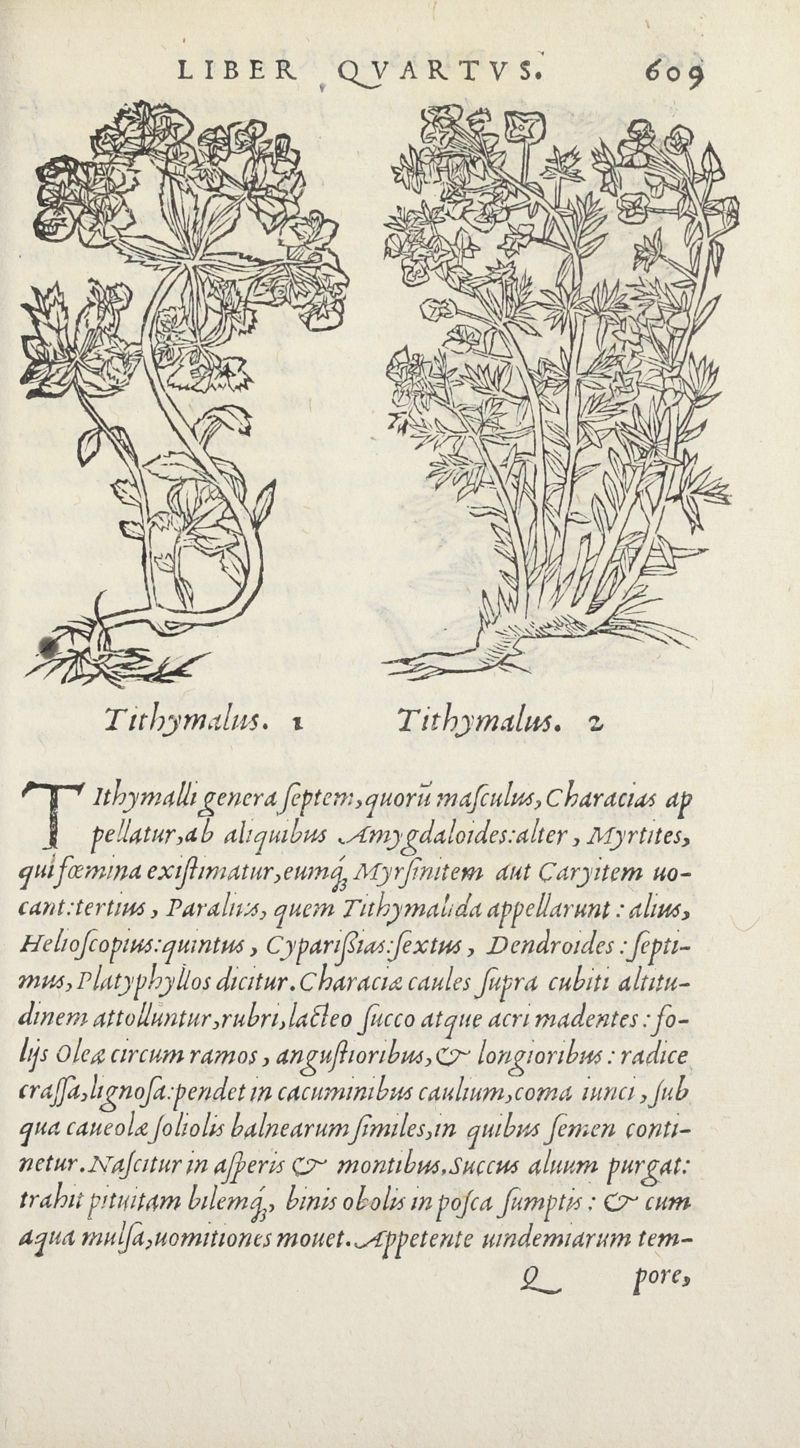 LIBER QVARTVS. 609
Tithymalus. 1 Tithymalus. 2
TIthymalli genera ſeptem, quorũ maſculus, Characias ap
pellatur, ab aliquibus Amygdaloides: alter, Myrtites,
qui fœmina exiſtimatur, eumq́₃ Myrſinitem aut Caryitem uo-
cant: tertius, Paralius, quem Tithymalida appellarunt: alius,
Helioſcopius: quintus, Cypariſsias: ſextus, Dendroides: ſepti-
mus, Platyphyllos dicitur. Characiæ caules ſupra cubiti altitu-
dinem attolluntur, rubri, lacteo ſucco atque acri madentes: fo-
lijs Oleæ circum ramos, anguſtioribus, & longioribus: radice
craſſa, lignoſa: pendet in cacuminibus caulium, coma iunci, ſub
qua caueolæ foliolis balnearum ſimiles, in quibus ſemen conti-
netur. Naſcitur in aſperis & montibus. Succus aluum purgat:
trahit pituitam bilemq́₃, binis obolis in poſca ſumptis: & cum
aqua mulſa, uomitiones mouet. Appetente uindemiarum tem-
Q pore,